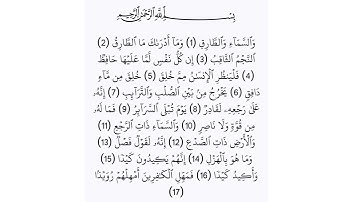 بِسْمِ اللَّهِ الرَّحْمَٰنِ الرَّحِيمِ
وَالسَّمَآءِ وَالطَّارِقِ (1) وَمَآ أَدْرَىٰكَ مَا الطَّارِقُ (2)
النَّجْمُ الثَّاقِبُ (3) إِن كُلُّ نَفْسٍ لَّمَّا عَلَيْهَا حَافِظٌ
(4) فَلْيَنظُرِ ٱلْإِنسَٰنُ مِمَّ خُلِقَ (5) خُلِقَ مِن مَّآءٍ
دَافِقٍ (6) يَخْرُجُ مِنۢ بَيْنِ الصُّلْبِ وَالتَّرَآئِبِ (7) إِنَّهُۥ
عَلَىٰ رَجْعِهِۦ لَقَادِرٌ (8) يَوْمَ تُبْلَى السَّرَآئِرُ (9) فَمَا لَهُۥ
مِن قُوَّةٍ وَلَا نَاصِرٍ (10) وَالسَّمَآءِ ذَاتِ الرَّجْعِ (11)
وَالْأَرْضِ ذَاتِ الصَّدْعِ (12) إِنَّهُۥ لَقَوْلٌ فَصْلٌ (13)
وَمَا هُوَ بِالْهَزْلِ (14) إِنَّهُمْ يَكِيدُونَ كَيْدًا (15)
وَأَكِيدُ كَيْدًا (16) فَمَهِّلِ الْكَٰفِرِينَ أَمْهِلْهُمْ رُوَيْدًۢا
(17)